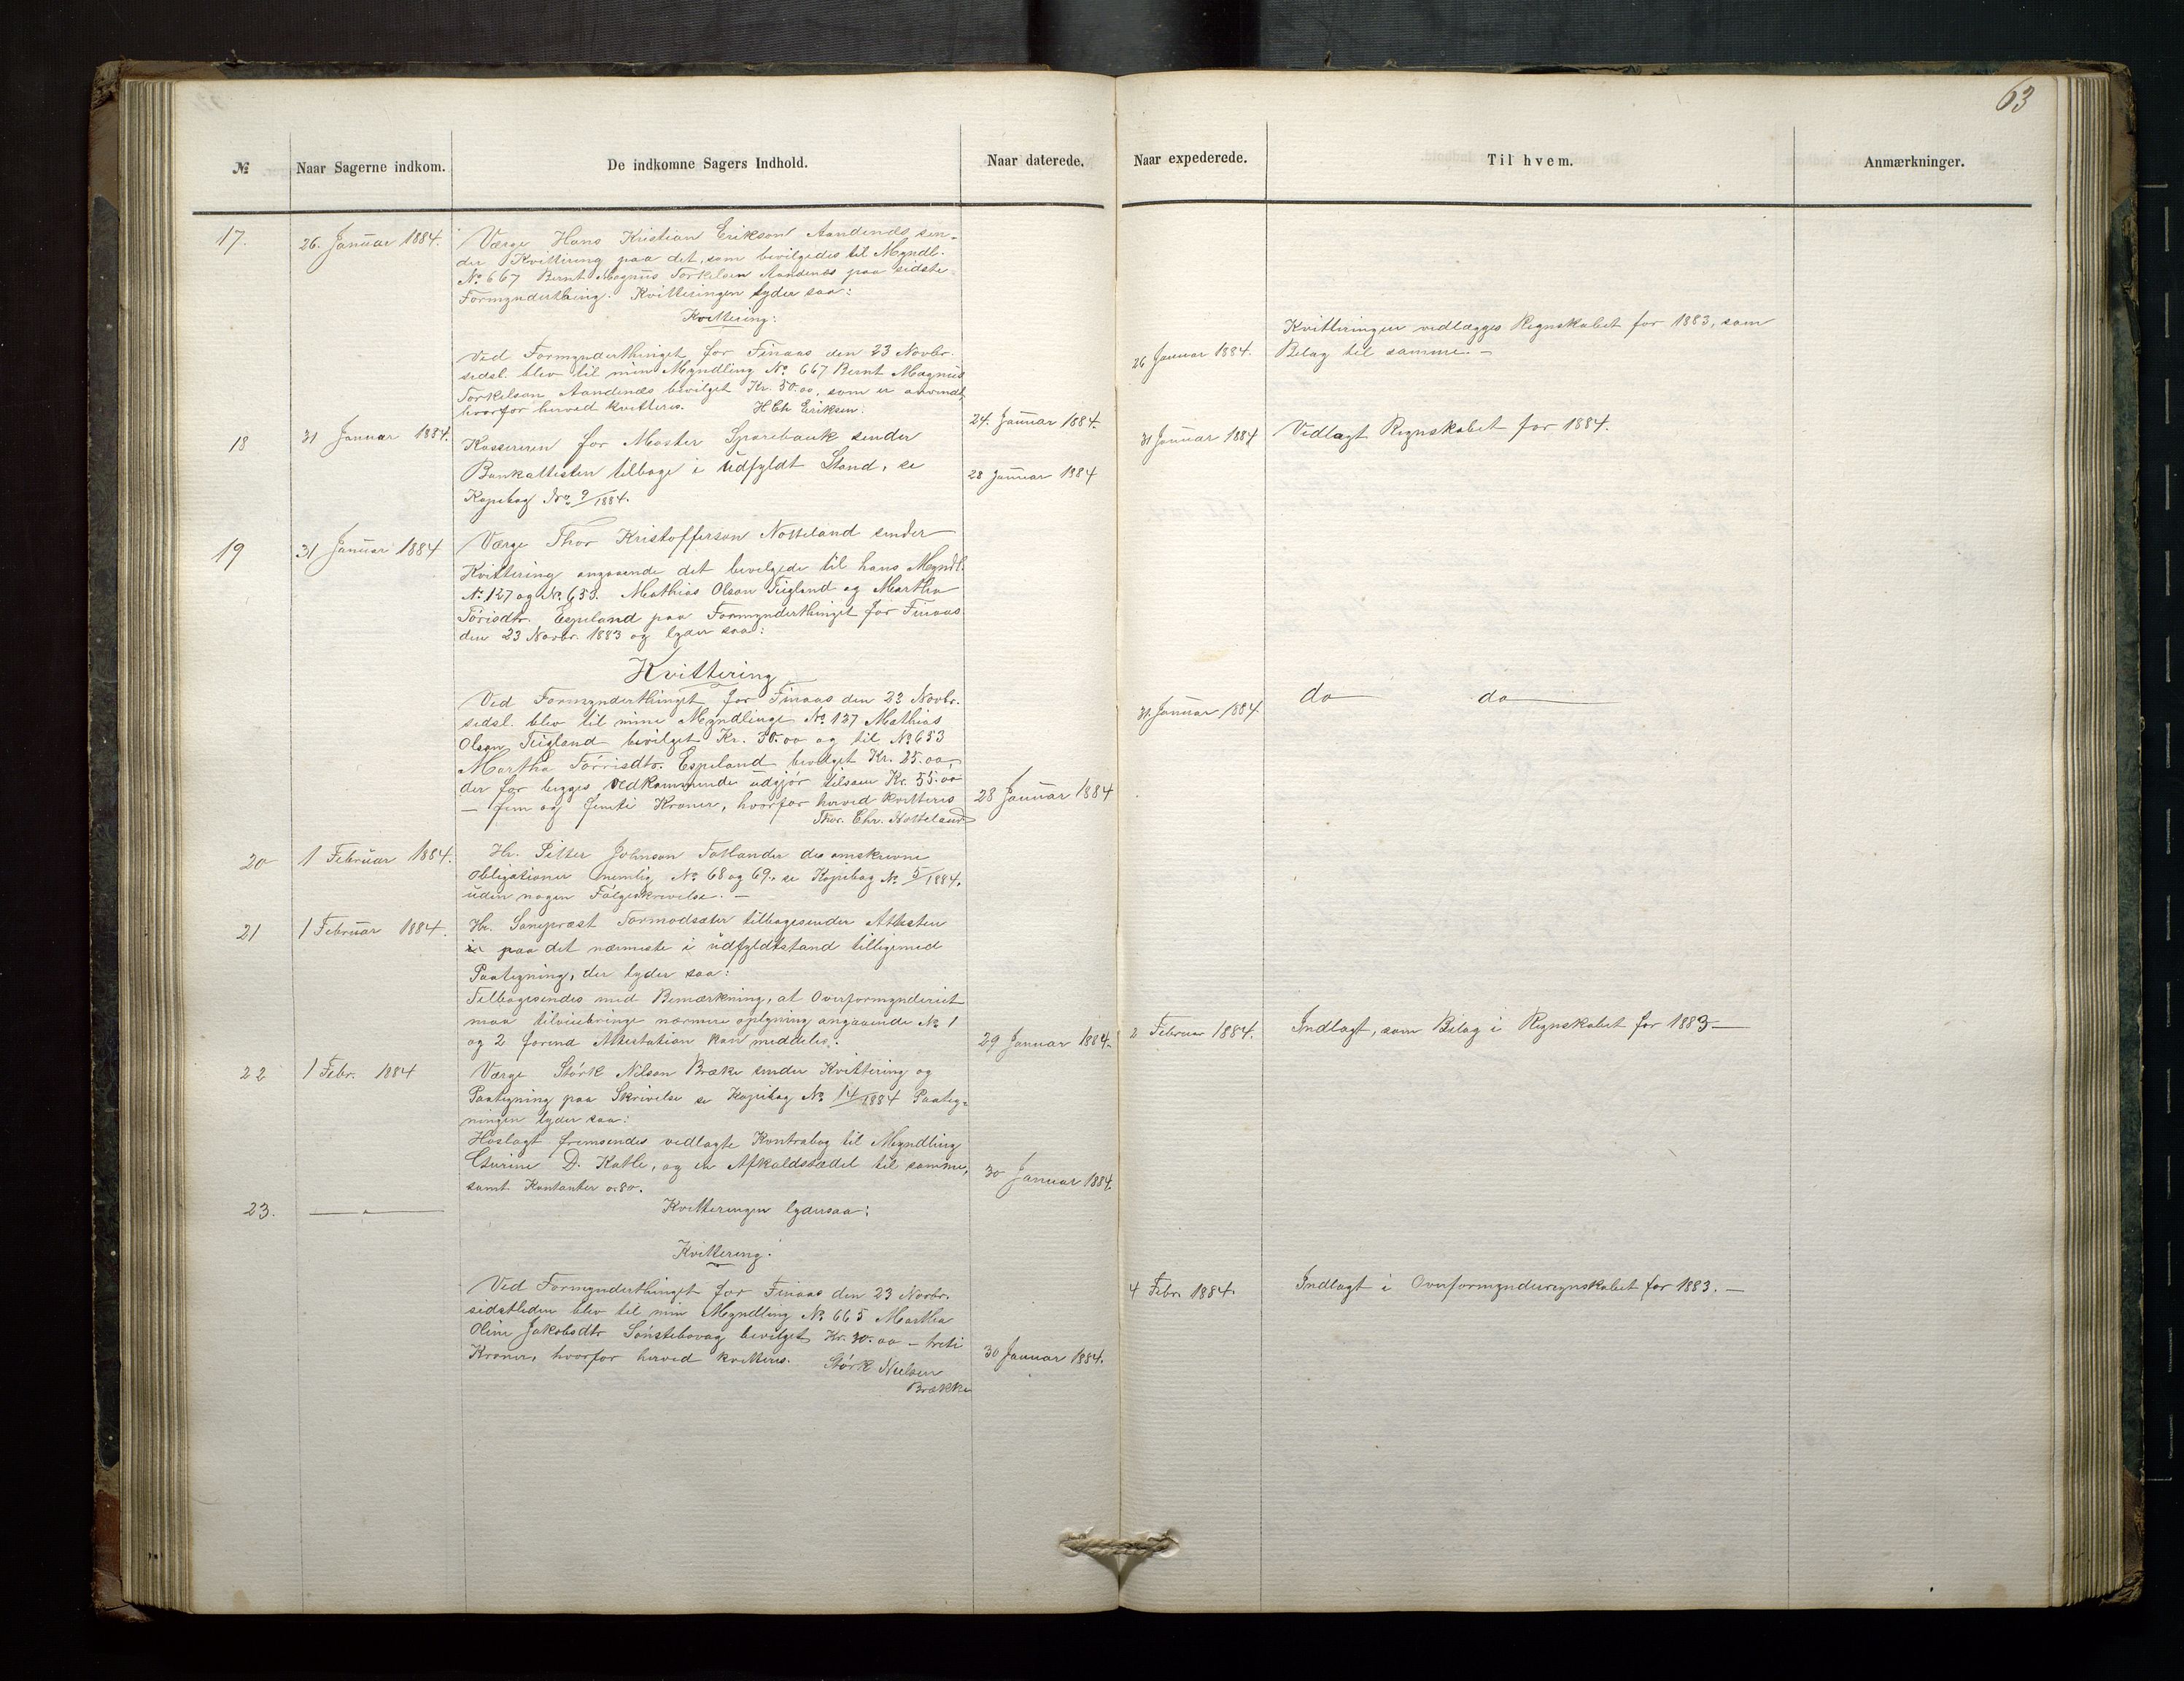 63
№
Naar Sagerne indkom.
De indkomne Sagers Indhold.
Naar daterede.
Naar expederede.
Til hvem.
Anmærkninger.
17.
26. Januar 1884.
Værge Hans Kristian Erikson Aandenæs sen-
der Kvittering paa det, som bevilgedes til Myndl.
No 667 Bernt Magnus Torkelsen Aandenæs paa sidste
Formynderthing. Kvitteringen lyder saa:
Kvittering:
Ved Formynderthinget for Finaas den 23 Novbr.
sidstl. blev til min Myndling No 667 Bernt Magnus
Torkelsen Aandenæs bevilget Kr. 50.00, som er anvendt,
hvorfor herved kvitteres. H Ch Eriksen.
24. Januar 1884.
26 Januar 1884.
Kvitteringen vedlægges Regnskabet for 1883, som
Bilag til samme. —
18
31 Januar 1884.
Kassereren for Moster Sparebank sender
Bankattesten tilbage i udfyldt Stand, se
Kopibog No 9/1884.
28 Januar 1884
31 Januar 1884
Vedlagt Regnskabet for 1884.
19
31 Januar 1884
Værge Thor Kristofferson Notteland sender
Kvittering angaaende det bevilgede til hans Myndl.
No 127 og No 653. Mathias Olson Teigland og Martha
Törisdtr. Espeland paa Formynderthinget for Finaas
den 23 Novbr. 1883 og lyder saa:
Kvittering
Ved Formynderthinget for Finaas den 23 Novbr.
sidstl. blev til mine Myndlinge No 127 Mathias
Olson Teigland bevilget Kr. 30.00 og til No 653
Martha Törrisdtr. Espeland bevilget Kr. 25.00,
der for begges vedkommende udgjör tilsam Kr. 55.00
— fem og femti Kroner, hvorfor herved kvitteres
Thor. Chr. Notteland
28 Januar 1884
31. Januar 1884.
do do
20
1 Februar 1884.
Hr. Pitter Johnson Totlander de omskrevne
Obligationer nemlig No 68 og 69. se Kopibog No 5/1884.
uden nogen Fölgeskrivelse. —
21
1 Februar 1884.
Hr. Sognepræst Tormodsæter tilbagesender Attesten
paa det nærmeste i udfyldtstand tilligemed
Paategning, der lyder saa:
Tilbagesendes med Bemærkning, at Overformynderiet
maa tilveiebringe nærmere oplysning angaaende No 1
og 2 forend Attestation kan meddeles.
29 Januar 1884.
2 Februar 1884.
Indlagt, som Bilag i Regnskabet for 1883 —
22
1 Febr. 1884
Værge Störk Nilson Bræke sender Kvittering og
Paategning paa Skrivelse se Kopibog No 14/1884 Paateg-
ningen lyder saa:
Hoslagt fremsendes vedlagte Kontrabog til Myndling
D. Katle, og en Afkaldssædel til samme,
samt Kontanter 0.80.
30 Januar 1884.
23.
Kvitteringen lyder saa:
Kvittering.
Ved Formynderthinget for Finaas den 23 Novbr.
sidstleden blev til min Myndling No 665 Martha
Oline Jakobsdtr Sönstebövaag bevilget Kr. 30.00 — treti
Kroner, hvorfor herved kvitteres. Störk Nielsen
Brække
30 Januar 1884.
4 Febr. 1884.
Indlagt i Overformynderregnskabet for 1883. —